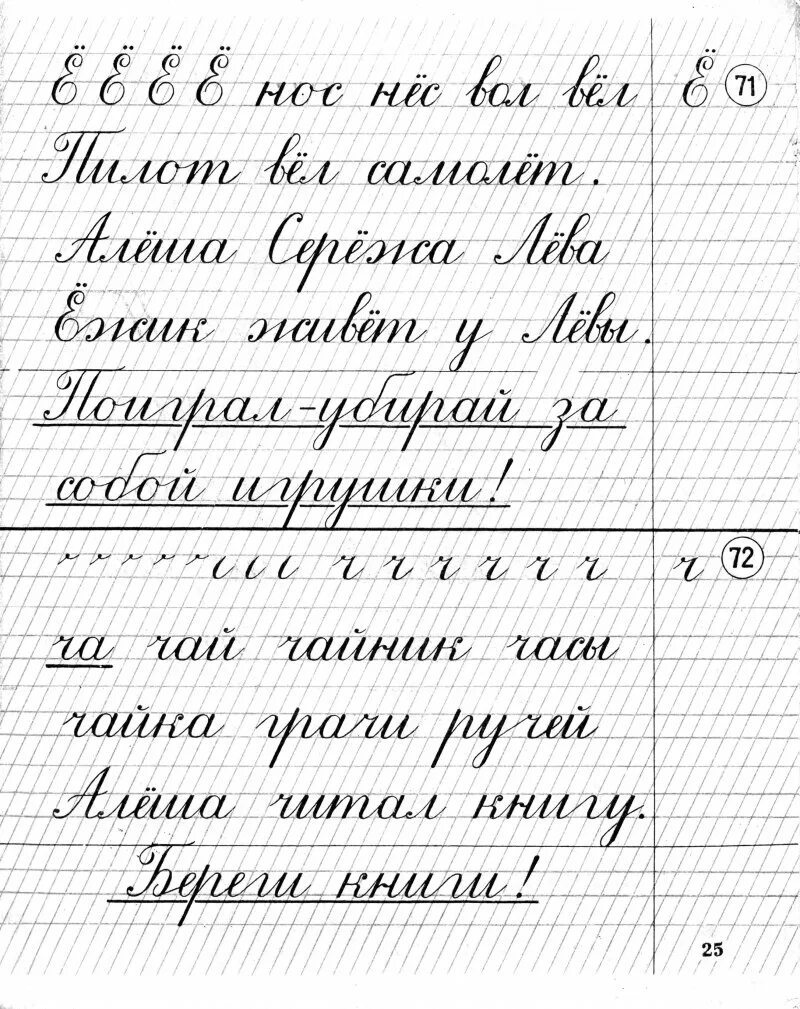 Ё Ё Ё Ё нос нёс вол вёл Ё 71
Пилот вёл самолёт.
Алёша Серёжа Лёва
Ёжик живёт у Лёвы.
Поиграл-убирай за
собой игрушки!
ч ч ч ч ч ч ч 72
ча чай чайник часы
чайка грачи ручей
Алёша читал книгу.
Береги книги!
25